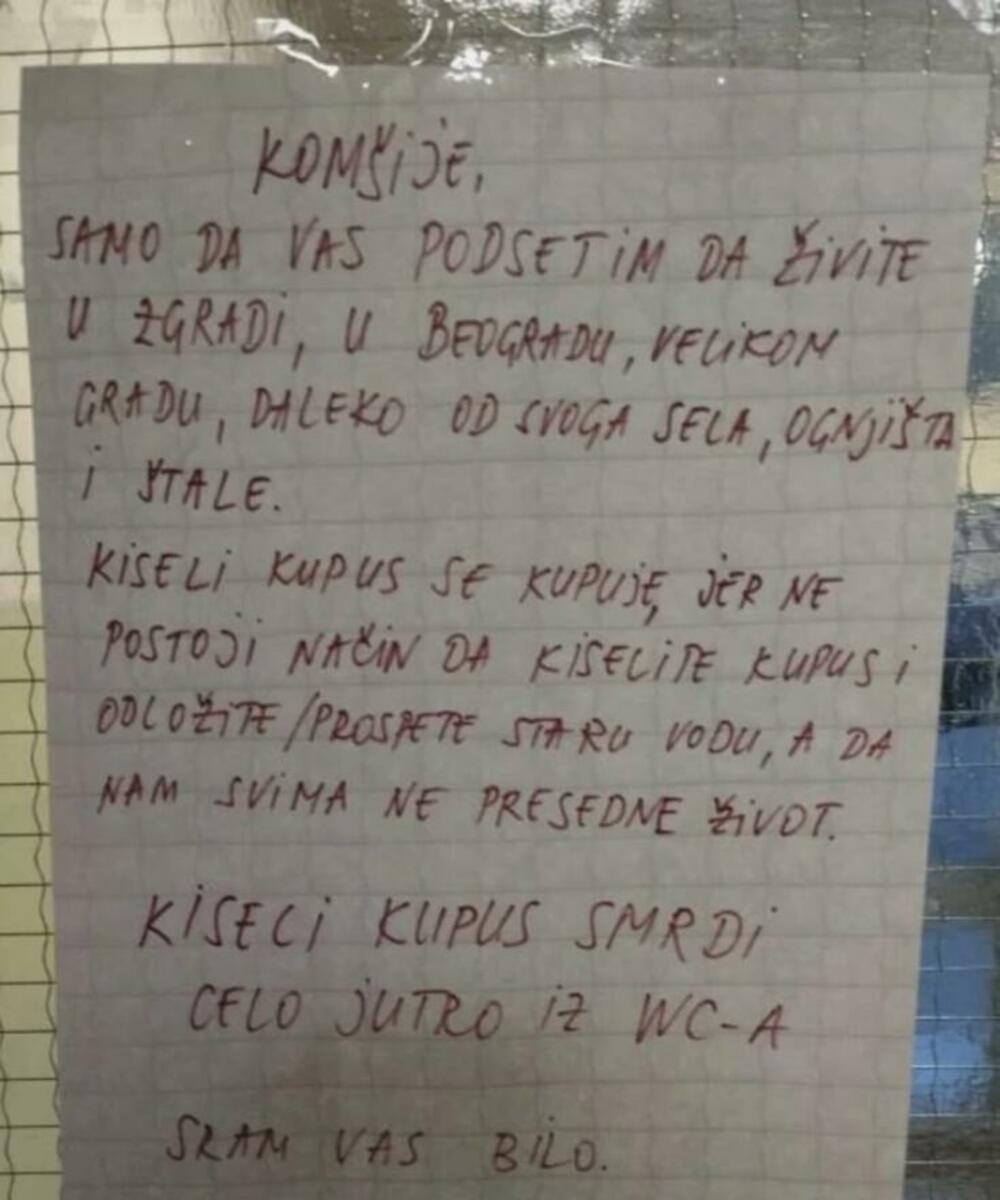 KOMŠIJE,
SAMO DA VAS PODSETIM DA ŽIVITE
U ZGRADI, U BEOGRADU, VELIKOM
GRADU, DALEKO OD SVOGA SELA, OGNJIŠTA
I ŠTALE.
KISELI KUPUS SE KUPUJE, JER NE
POSTOJI NAČIN DA KISELITE KUPUS I
ODLOŽITE/PROSPETE STARU VODU, A DA
NAM SVIMA NE PRESEDNE ŽIVOT.
KISELI KUPUS SMRDI
CELO JUTRO IZ WC-A
SRAM VAS BILO.